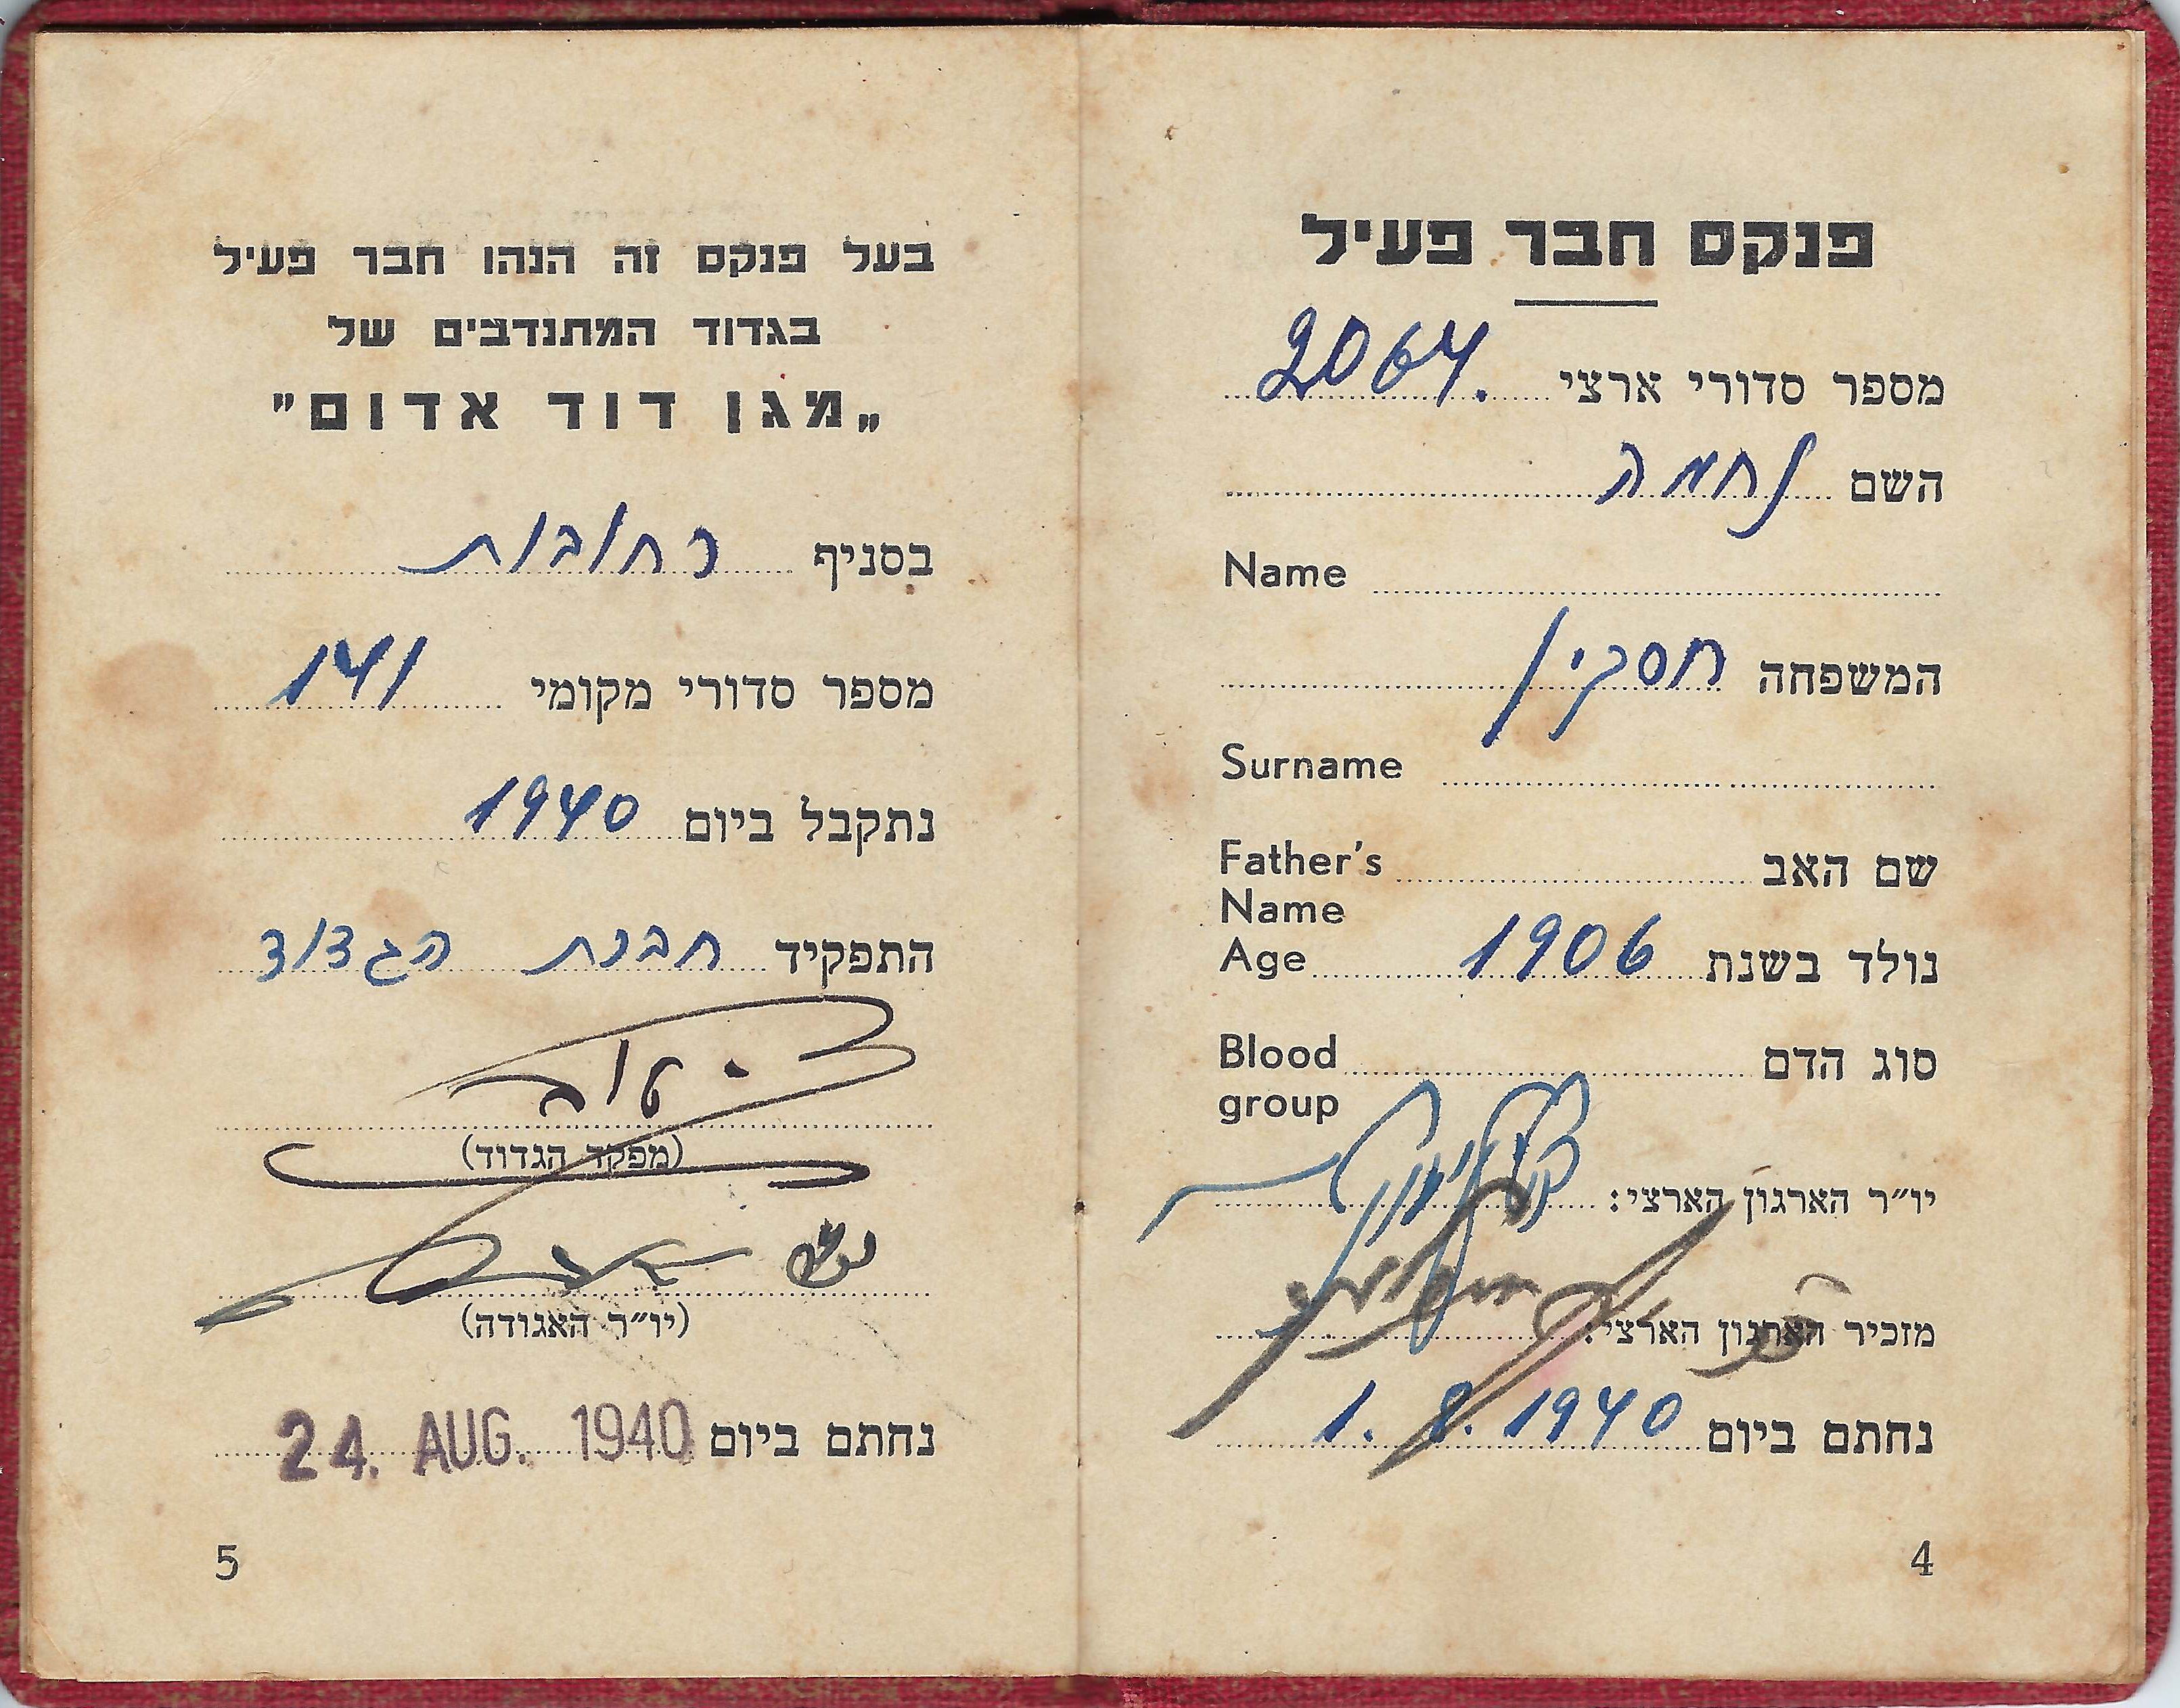 פנקס חבר פעיל
מספר סדורי ארצי 2064.
השם נחמה
Name
המשפחה חסקין
Surname
שם האב Father's Name
נולד בשנת 1906 Age
סוג הדם Blood group
יו״ר הארגון הארצי:
מזכיר הארגון הארצי:
נחתם ביום 1. 8. 1940
4
בעל פנקס זה הנהו חבר פעיל
בגדוד המתנדבים של
„מגן דוד אדום"
בסניף רחובות
מספר סדורי מקומי 141
נתקבל ביום 1940
התפקיד חברת הגדוד
(מפקד הגדוד)
(יו״ר האגודה)
נחתם ביום 24. AUG. 1940
5